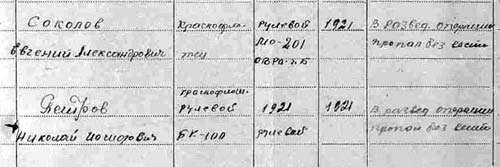 Соколов Краснофл- Рулевой 1921 В развед. операции
Евгений Александрович тец МО-201 пропал без вести
ОВРа
краснофлот.
Петров Рулевой 1921 1921 В развед. операции
Николай Иосифович БК-100 рулевой пропал без вести